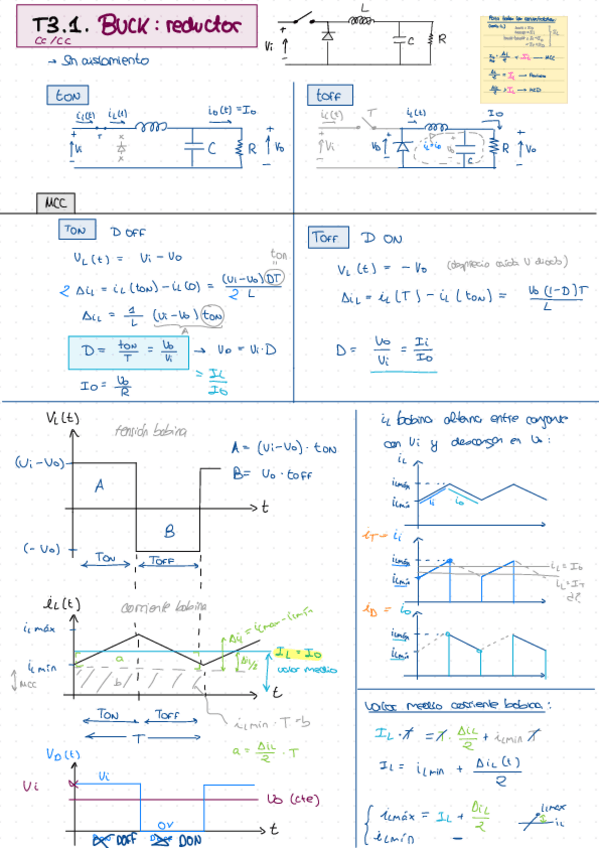 T3.1. BUCK: reductor
CC/CC
→ Sin aislamiento
L
Vi
C
R
tON
iL(t)
iL(t)
io(t) = Io
T
Vi
C
R
Vo
tOFF
iL(t)
Io
T
Vi
C
R
Vo
MCC
TON D OFF
VL(t) = Vi - Vo
ton
2 ΔiL = iL(ton) - iL(0) = (Vi-Vo) DT / 2 L
ΔiL = 1/L (Vi-Vo) ton
A
D = ton/T = Vo/Vi → Vo = Vi·D
Io = Vo/R
= Ii/Io
TOFF D ON
VL(t) = - Vo (desprecio caída V diodo)
ΔiL = iL(T) - iL(ton) = Vo(1-D)T / L
D = Vo/Vi = Ii/Io
VL(t)
tensión bobina
(Vi-Vo)
A
A = (Vi-Vo) · ton
B = Vo · toff
t
B
(-Vo)
TON TOFF
iL(t)
corriente bobina
iL máx
iL mín
a
ΔiL = iLmáx-iLmín
ΔiL/2
IL = Io
valor medio
MCC
b
t
TON TOFF
T
iLmin · T = b
a = ΔiL/2 · T
VD(t)
Vi
Vi
Vo (cte)
0V
t
DOFF DON
iL bobina alterna entre cargarse
con Vi y descargar en Vo:
iL
iLmáx
iLmín
ii
io
iT = ii
iLmáx
iLmín
iL = Io
iD = io
iLmáx
iLmín
valor medio corriente bobina:
IL · T = T · ΔiL/2 + iLmin T
IL = iLmin + ΔiL(t)/2
iLmáx = IL + ΔiL/2
iLmín -
iLmáx
iL